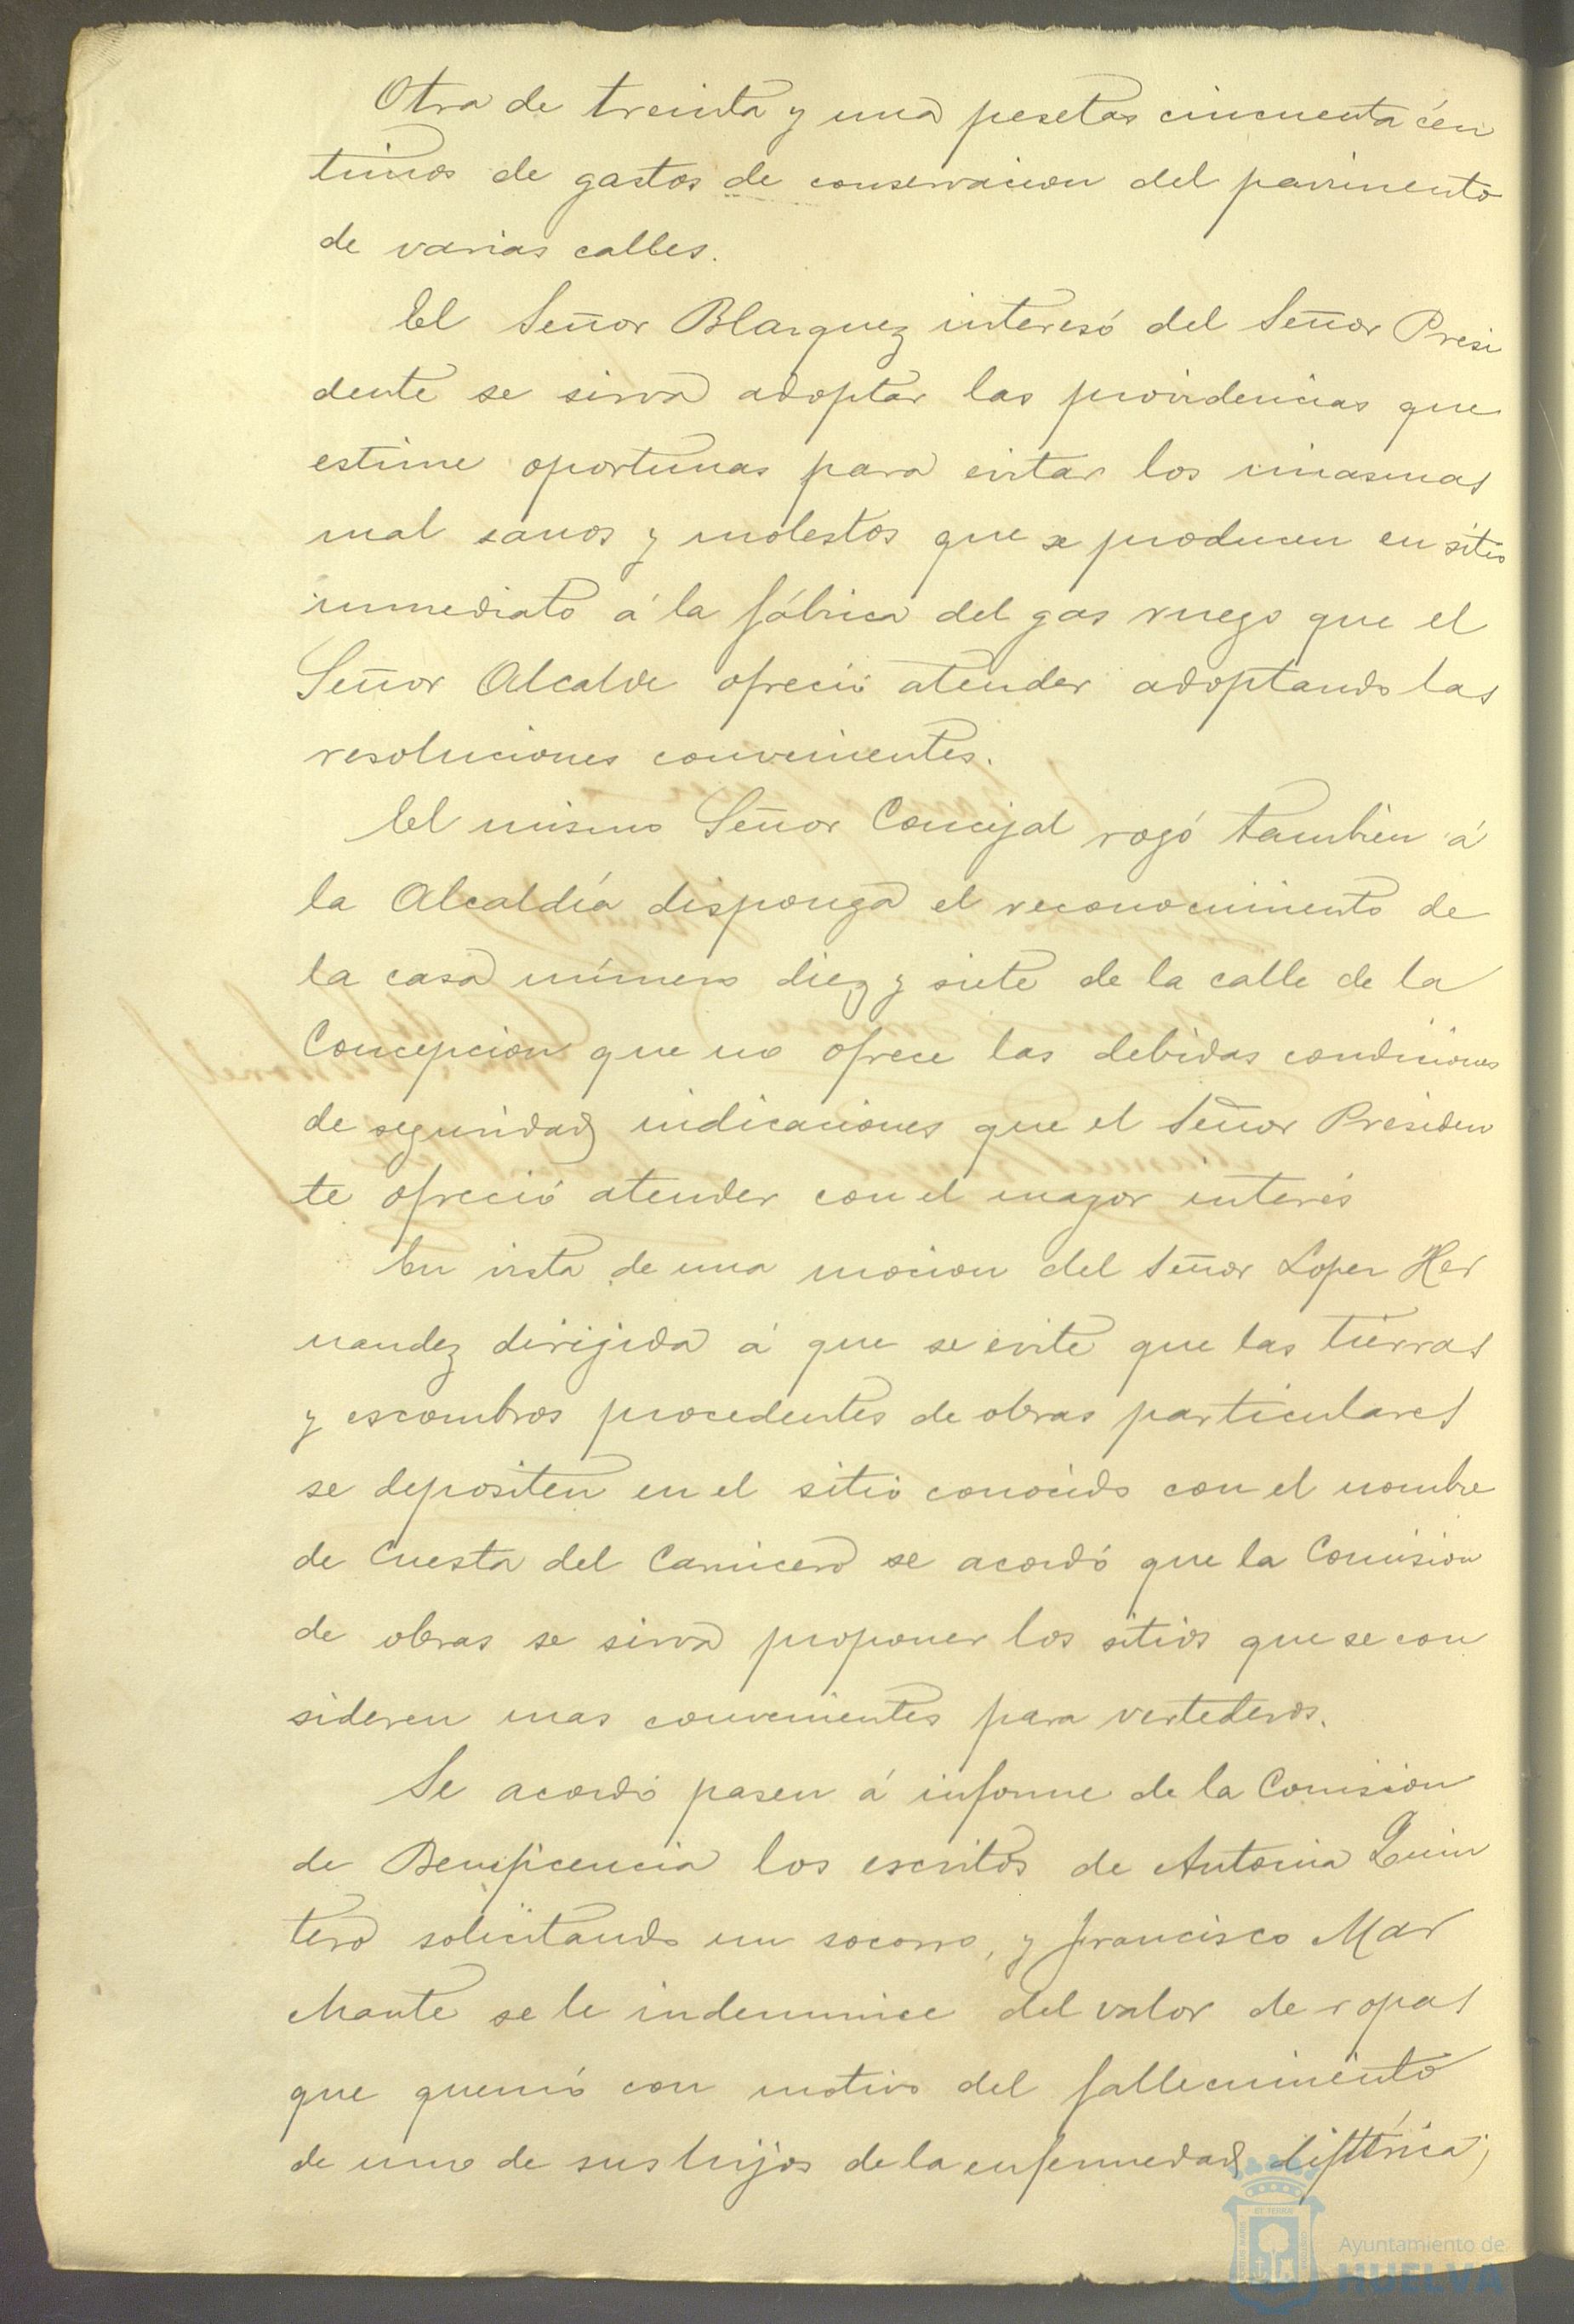 Otra de treinta y una pesetas cincuenta cén
timos de gastos de conservacion del pavimento
de varias calles.
El Señor Blazquez interesó del Señor Presi
dente se sirva adoptar las providencias que
estime oportunas para evitar los miasmas
mal sanos y molestos que se producen en sitio
inmediato á la fábrica del gas ruego que el
Señor Alcalde ofreció atender adoptando las
resoluciones convenientes.
El mismo Señor Concejal rogó tambien á
la Alcaldía disponga el reconocimiento de
la casa número diez y siete de la calle de la
Concepcion que no ofrece las debidas condiciones
de seguridad indicaciones que el Señor Presiden
te ofreció atender con el mayor interés
En vista de una mocion del Señor Lopez Her
nandez dirijida á que se evite que las tierras
y escombros procedentes de obras particulares
se depositen en el sitio conocido con el nombre
de Cuesta del Carnicero se acordó que la Comision
de obras se sirva proponer los sitios que se con
sideren mas convenientes para vertederos.
Se acordó pasen á informe de la Comision
de Beneficencia los escritos de Antonia Quin
tero solicitando un socorro, y Francisco Mar
chante se le indemnice del valor de ropas
que quemó con motivo del fallecimiento
de uno de sus hijos de la enfermedad diftérica;
Ayuntamiento de
HUELVA